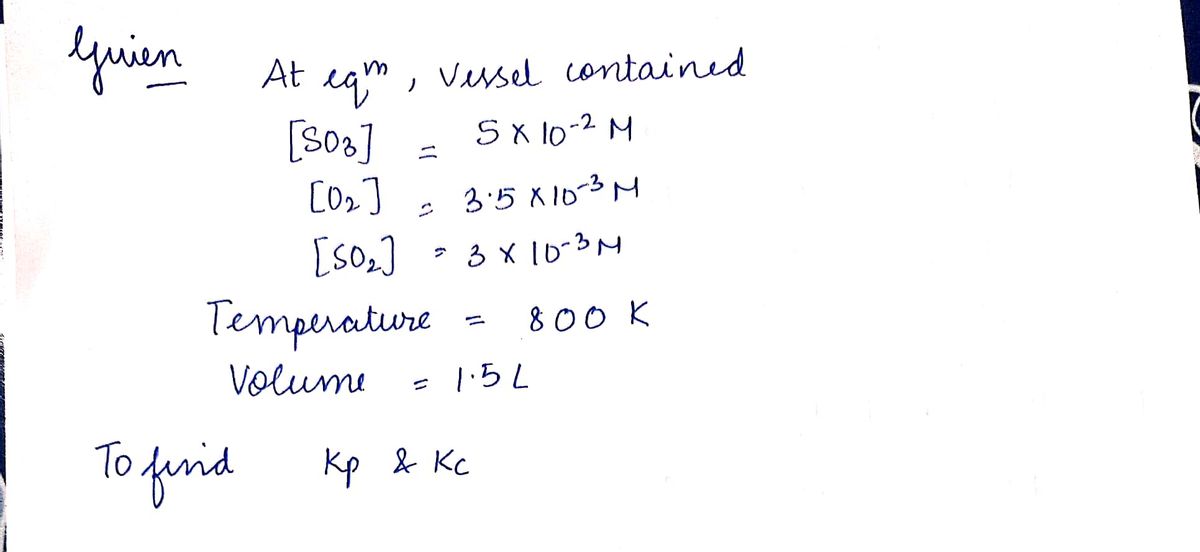 Given
At eqm, Vessel contained
[SO3] = 5 x 10-2 M
[O2] = 3.5 x 10-3 M
[SO2] = 3 x 10-3 M
Temperature = 800 K
Volume = 1.5 L
To find Kp & Kc